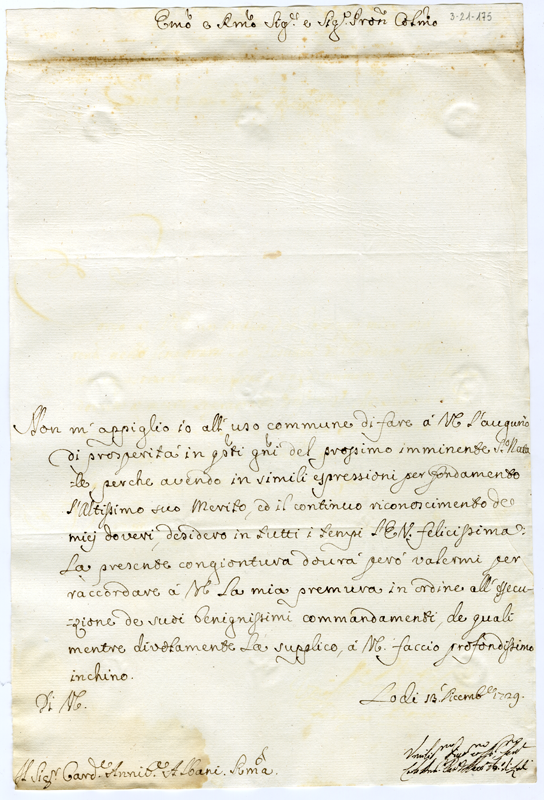 Emo e Rmo Sigr e Sigr Pron Colmo
3-21-175
Non m'appiglio io all'uso commune di fare á VE l'augurio
di prosperitá in qsti gni del prossimo imminente Sto Nata-
-le, perche avendo in simili espressioni per fondamento
l'Altissimo suo Merito, ed il continuo riconoscimento de
miej doveri, desidero in tutti i tempi l'E.V. felicissima.
La presente congiontura dourá peró valermi per
raccordare á VE la mia premura in ordine all'essecu-
-zione de suoi benignissimi commandamenti, de quali
mentre divotamente La supplico, á VE. faccio profondissimo
inchino.
Di VE. Lodi 13 Xcembre 1729.
Al Sigr Cardle Annible Albani. Roma.